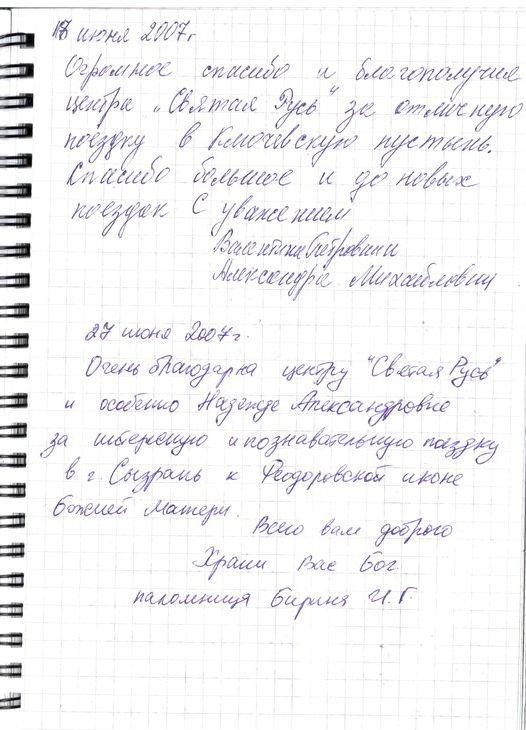 17 июня 2007г
Огромное спасибо и благополучия
центра „Святая Русь" за отличную
поездку в Ключевскую пустынь.
Спасибо большое и до новых
поездок С уважением
Валентина Петровна и
Александра Михайловна
27 июня 2007г.
Очень благодарна центру "Святая Русь"
и особенно Надежде Александровне
за интересную и познавательную поездку
в г. Сызрань к Феодоровской иконе
Божией Матери.
Всего вам доброго
Храни Вас Бог.
паломница Бирина И. Г.